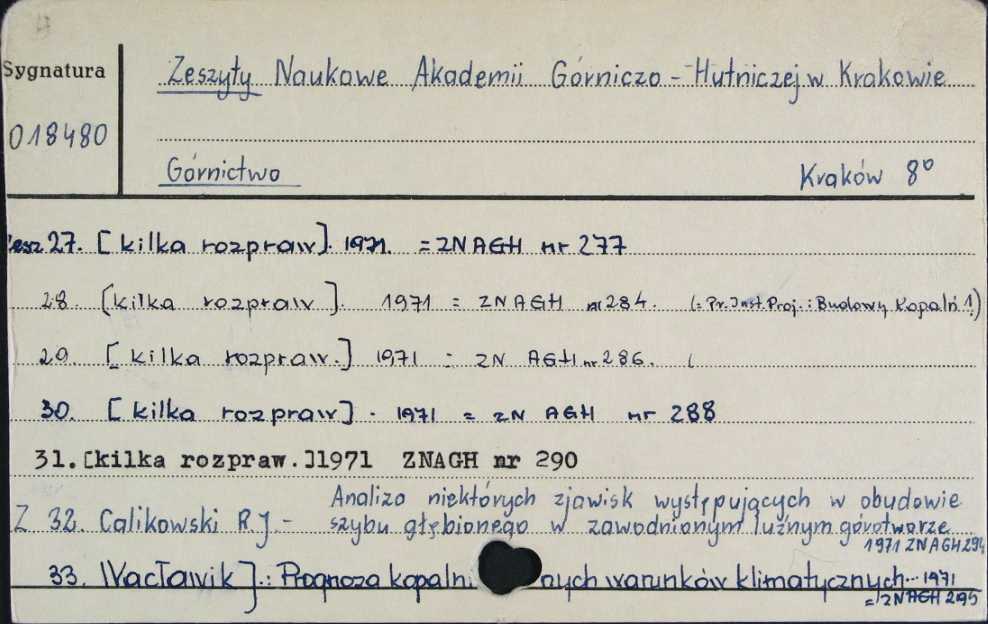 Sygnatura
018480
Zeszyty Naukowe Akademii Górniczo-Hutniczej w Krakowie
Górnictwo Kraków 8º
Zesz 27. [kilka rozpraw]. 1971. = ZN AGH nr 277
28. [kilka rozpraw]. 1971 = ZN AGH nr 284. (= Pr. Inst. Proj. i Budowy Kopalń 1.)
29. [kilka rozpraw.] 1971 = ZN AGH nr 286. (
30. [kilka rozpraw]. 1971 = ZN AGH nr 288
31. [kilka rozpraw.]1971 ZNAGH nr 290
Z 32. Calikowski R.J - Analiza niektórych zjawisk występujących w obudowie
szybu głębionego w zawodnionym luźnym górotworze
1971 ZNAGH 294
33. Wacławik J.: Prognoza kopaln nych warunków klimatycznych 1971
= ZNAGH 295